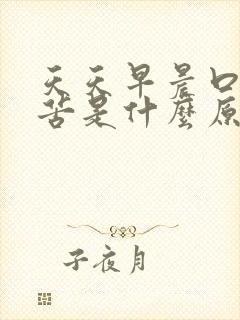 天天早晨口
苦是什麼原
子夜月